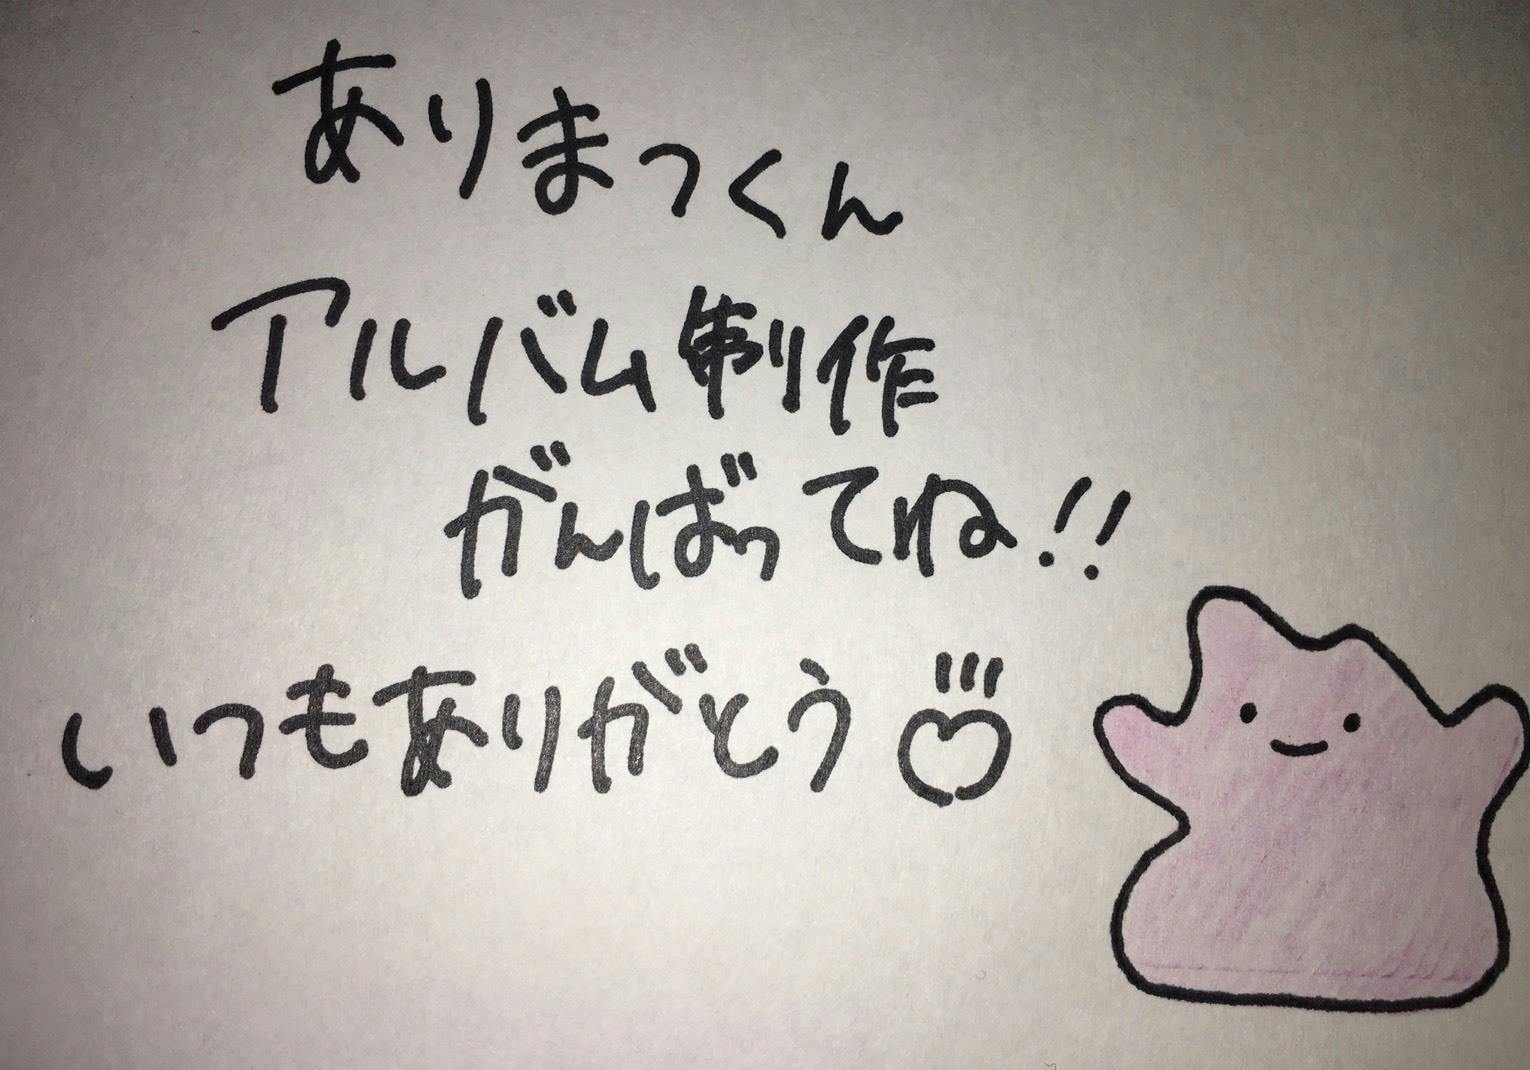 ありまっくん
アルバム制作
がんばってね!!
いつもありがとう